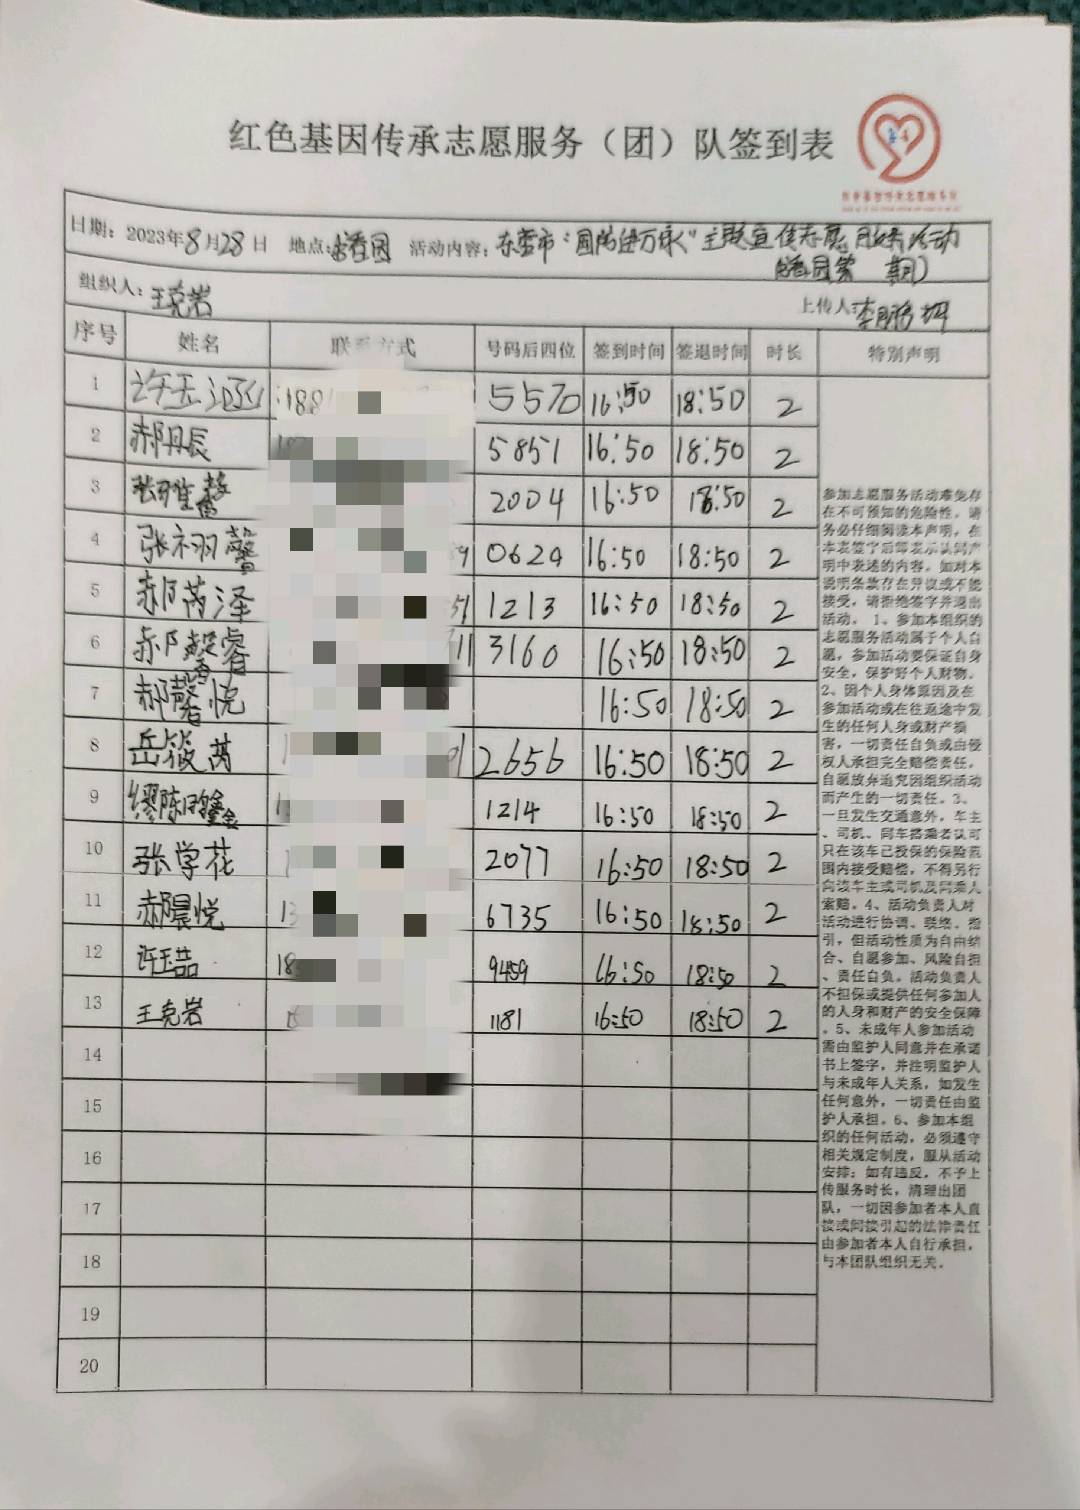 红色基因传承志愿服务（团）队签到表
日期：2023年8月28日 地点: 香园 活动内容：东营市“国防进万家”主题宣传志愿服务活动
香园第 期）
组织人：王克岩
上传人：
序号 姓名 联系方式 号码后四位 签到时间 签退时间 时长 特别声明
1 许玉 188 5570 16:50 18:50 2
2 郝丹辰 5851 16:50 18:50 2
3 张雅馨 2004 16:50 18:50 2
4 张羽馨 0624 16:50 18:50 2
5 郝芮泽 1213 16:50 18:50 2
6 郝馨睿 11 3160 16:50 18:50 2
7 郝馨悦 16:50 18:50 2
8 岳筱芮 2656 16:50 18:50 2
9 缪陈 1214 16:50 18:50 2
10 张学花 2077 16:50 18:50 2
11 郝晨悦 13 6735 16:50 18:50 2
12 许玉喆 18 9459 66:50 18:50 2
13 王克岩 1181 16:50 18:50 2
14
15
16
17
18
19
20
参加志愿服务活动难免存
在不可预知的危险性，请
务必仔细阅读本声明，在
本表签字后即表示认同声
明中表述的内容。如对本
说明条款存在异议或不能
接受，请拒绝签字并退出
活动。 1、参加本组织的
志愿服务活动属于个人自
愿，参加活动要保证自身
安全，保护好个人财物。
2、因个人身体原因及在
参加活动或在往返途中发
生的任何人身或财产损
害，一切责任自负或由侵
权人承担完全赔偿责任，
自愿放弃追究因组织活动
而产生的一切责任。3、
一旦发生交通意外，车主
、司机、同车搭乘者认可
只在该车已投保的保险范
围内接受赔偿，不得另行
向该车主或司机及同乘人
索赔。4、活动负责人对
活动进行协调、联络、指
引，但活动性质为自由结
合、自愿参加、风险自担
、责任自负。活动负责人
不担保或提供任何参加人
的人身和财产的安全保障
。5、未成年人参加活动
需由监护人同意并在承诺
书上签字，并注明监护人
与未成年人关系，如发生
任何意外，一切责任由监
护人承担。6、参加本组
织的任何活动，必须遵守
相关规定制度，服从活动
安排；如有违反，不予上
传服务时长，清理出团
队，一切因参加者本人直
接或间接引起的法律责任
由参加者本人自行承担，
与本团队组织无关。